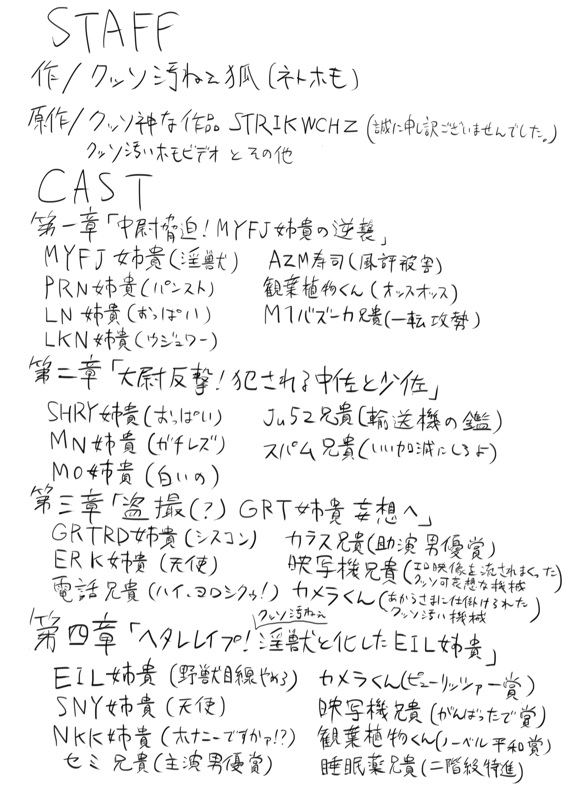 STAFF
作/クッソ汚ねえ狐(ネトホモ)
原作/クッソ神な作品 STRIKWCHZ(誠に申し訳ございませんでした。)
クッソ汚いホモビデオ とその他
CAST
第一章「中尉脅迫!MYFJ姉貴の逆襲」
MYFJ 姉貴(淫獣) AZM寿司(風評被害)
PRN姉貴(パンスト) 観葉植物くん(オッスオッス)
LN 姉貴(おっぱい) M1バズーカ兄貴(一転攻勢)
LKN姉貴(ウジュワー)
第二章「大尉反撃!犯される中佐と少佐」
SHRY姉貴(おっぱい) Ju52兄貴(輸送機の鑑)
MN姉貴(ガチレズ) スパム兄貴(いい加減にしろよ)
MO姉貴(白いの)
第三章「盗撮(?) GRT姉貴 妄想へ」
GRTRD姉貴(シスコン) カラス兄貴(助演男優賞)
ERK姉貴(天使) 映写機兄貴(エロ映像を流されまくったクッソ可哀想な機械)
電話兄貴(ハイ、ヨロシクゥ!) カメラくん(あからさまに仕掛けられたクッソ汚い機械)
クッソ汚ねえ
第四章「ヘタレレイプ!淫獣と化したEIL姉貴」
EIL姉貴(野獣目線やめろ) カメラくん(ピューリッツァー賞)
SNY姉貴(天使) 映写機兄貴(がんばったで賞)
NKK姉貴(オナニーですかァ!?) 観葉植物くん(ノーベル平和賞)
セミ兄貴(主演男優賞) 睡眠薬兄貴(二階級特進)